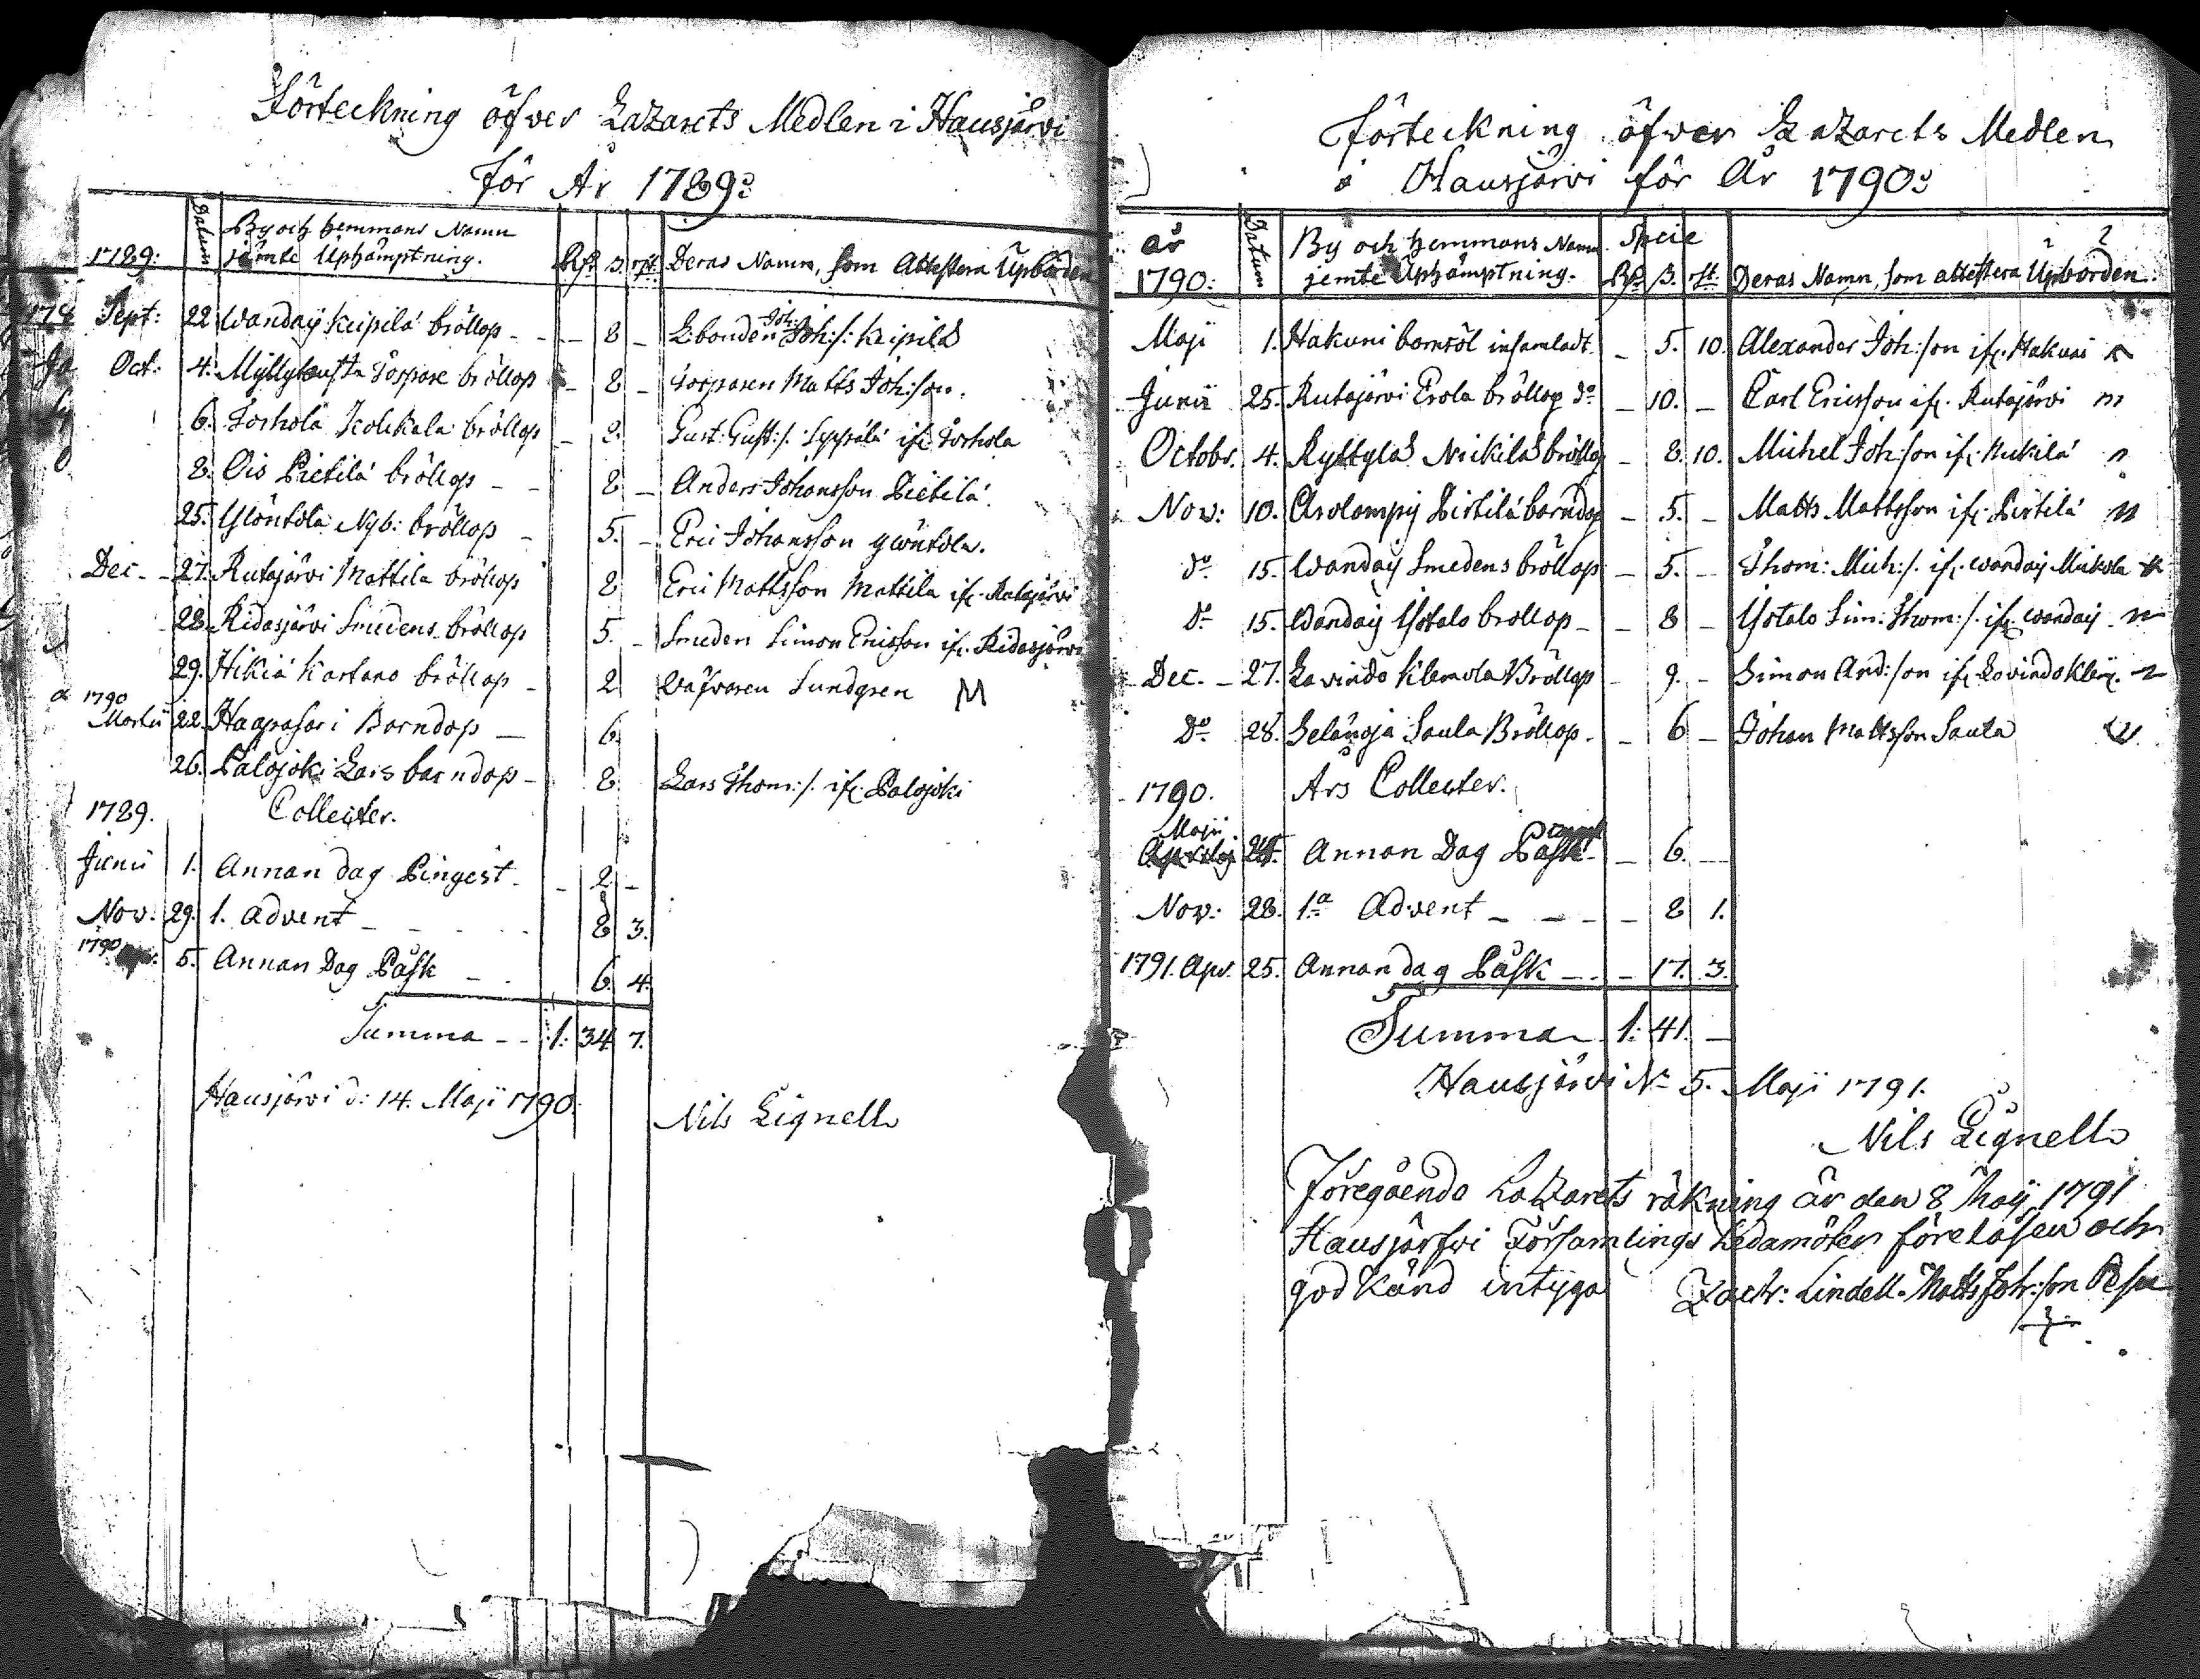 Förteckning öfver Lazarets Medlen i Hausjärvi
för År 1789:
1789: Datum By och hemmans Namn jämte Uphämptning. Rd. s. rst. Deras Namn, som Attestera Upbörden
Sept: 22 Wandaij Keipilä bröllop - - - 8 - Ebonden Joh: Joh:s: Keipilä
Oct. 4. Myllykusta Torpare bröllop - 8 - Torparen Matts Joh:son.
6. Torhola Kolckala bröllop - 2. Gust: Gust:s. Seppälä ifr. Torhola
8. Ois Pietilä bröllop - - 8 - Anders Johansson Pietilä.
25. Ylöntola Nyb: bröllop - 5. - Eric Johansson Ylöntola.
Dec. - 27. Rutajärvi Mattila bröllop 8 Eric Mattsson Mattila ifr. Rutajärvi
28. Ridasjärvi Smedens bröllop 5. - Smeden Simon Ericsson ifr. Ridasjärvi
29. Hikiä Kartano bröllop - 2 Wäfvaren Lundgren M
a 1790
Martii 22. Haapasari Barndop - 6.
26. Palojoki Lars barndop - 8. Lars Thom:s. ifr. Palojoki
1789. Collecter.
Junii 1. Annan dag Pingest. - 2. -
Nov. 29. 1. Advent - - - 8 3.
1790 5. Annan Dag Påsk - - 6. 4.
Summa - - 1. 34 7.
Hausjärvi d: 14. Maji 1790.
Nils Lignell
Förteckning öfver Lazarets Medlen
i Hausjärvi för År 1790:
år 1790: Datum By och Hemmans Namn jemte Uphämptning. Specie Rd. s. rst. Deras Namn, som attestera Upbörden.
Maji 1. Hakuni barnsöl insamladt - 5. 10. Alexander Joh:son ifr. Hakuni
Junii 25. Rutajärvi Erola bröllop do - 10. - Carl Ericsson ifr. Rutajärvi
Octobr. 4. Ryttylä Nickilä bröllop - 8. 10. Michel Joh:son ifr. Nickilä
Nov: 10. Arolampij Pietilä barndop - 5. - Matts Mattsson ifr. Pietilä
do 15. Wandaij Smedens bröllop - 5. - Thom: Mich:s. ifr. Wandaij Mickola
do 15. Wandaij Ystalo bröllop - - 8 - Ystalo Sim: Thom:s. ifr. Wandaij
Dec. - 27. Lavindo Klemola Bröllop - 9. - Simon And:son ifr. Lovindo Klem.
Do 28. Selänoja Saula Bröllop. - 6 - Johan Mattsson Saula
1790. Års Collecter.
Maji 24. Annan Dag - 6. -
Nov: 28. 1a Advent - - - - 8 1.
1791. Apr. 25. Annan dag Påsk - - - 17. 3.
Summa 1. 41. -
Hausjärvi d. 5. Maji 1791.
Nils Lignell
Föregående Latzarets räkning är den 8 Maij 1791
Hausjärfwi Församlings Ledamöter föreläsen och
godkänd intyga Zachr: Lindell. Matts Joh:son